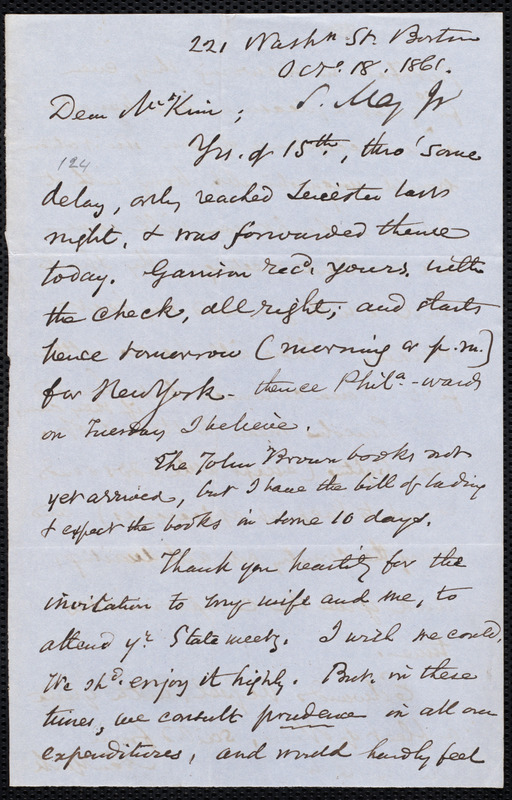 221 Washn. St. Boston
Octr. 18. 1861.
Dear McKim; S. May Jr
124
Yrs. of 15th, thro' some
delay, only reached Leicester last
night, & was forwarded thence
today. Garrison recd. yours, with
the check, all right; and starts
hence tomorrow (morning or p.m.)
for New York - thence Phila-wards
on Tuesday I believe.
The John Brown books not
yet arrived, but I have the bill of lading
& expect the books in some 10 days.
Thank you heartily for the
invitation to my wife and me, to
attend yr. State meetg. I wish we could.
We shd. enjoy it highly. But in these
times, we consult prudence in all our
expenditures, and would hardly feel